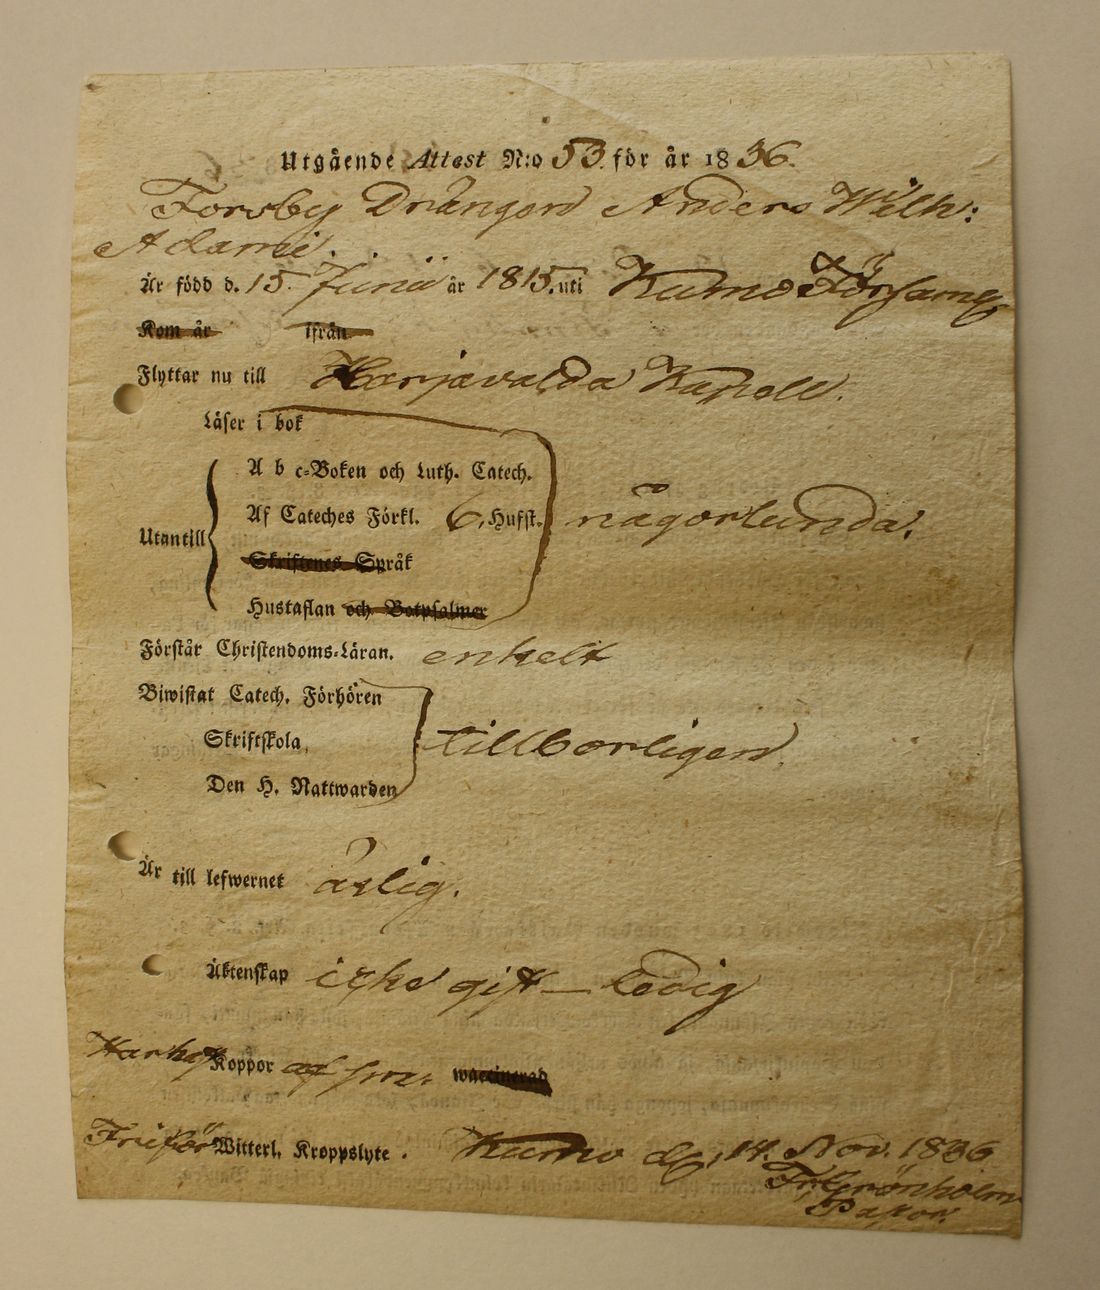 Utgående Attest N:o 53. för år 1836.
Forsby Drängen Anders Wilh:
Adami.
Är född d. 15. Junii år 1815. uti Kumo Församg
Kom år ifrån
Flyttar nu till Harjavalda Kapell.
Läser i bok
A b c-Boken och Luth. Catech.
Af Cateches Förkl. 6, Hufst. någorlunda.
Utantill
Skriftenes Språk
Hustaflan och Botpsalmer
Förstår Christendoms-Läran. enkelt
Biwistat Catech. Förhören
Skriftskola, tillborligen.
Den H. Nattwarden
Är till lefwernet ärlig.
Äktenskap icke gift — ledig
Har haft Koppor waccinerad
Fri för Witterl. Kroppslyte. Kumo d. 14. Nov. 1836
Fr Grönholm
Pastor.